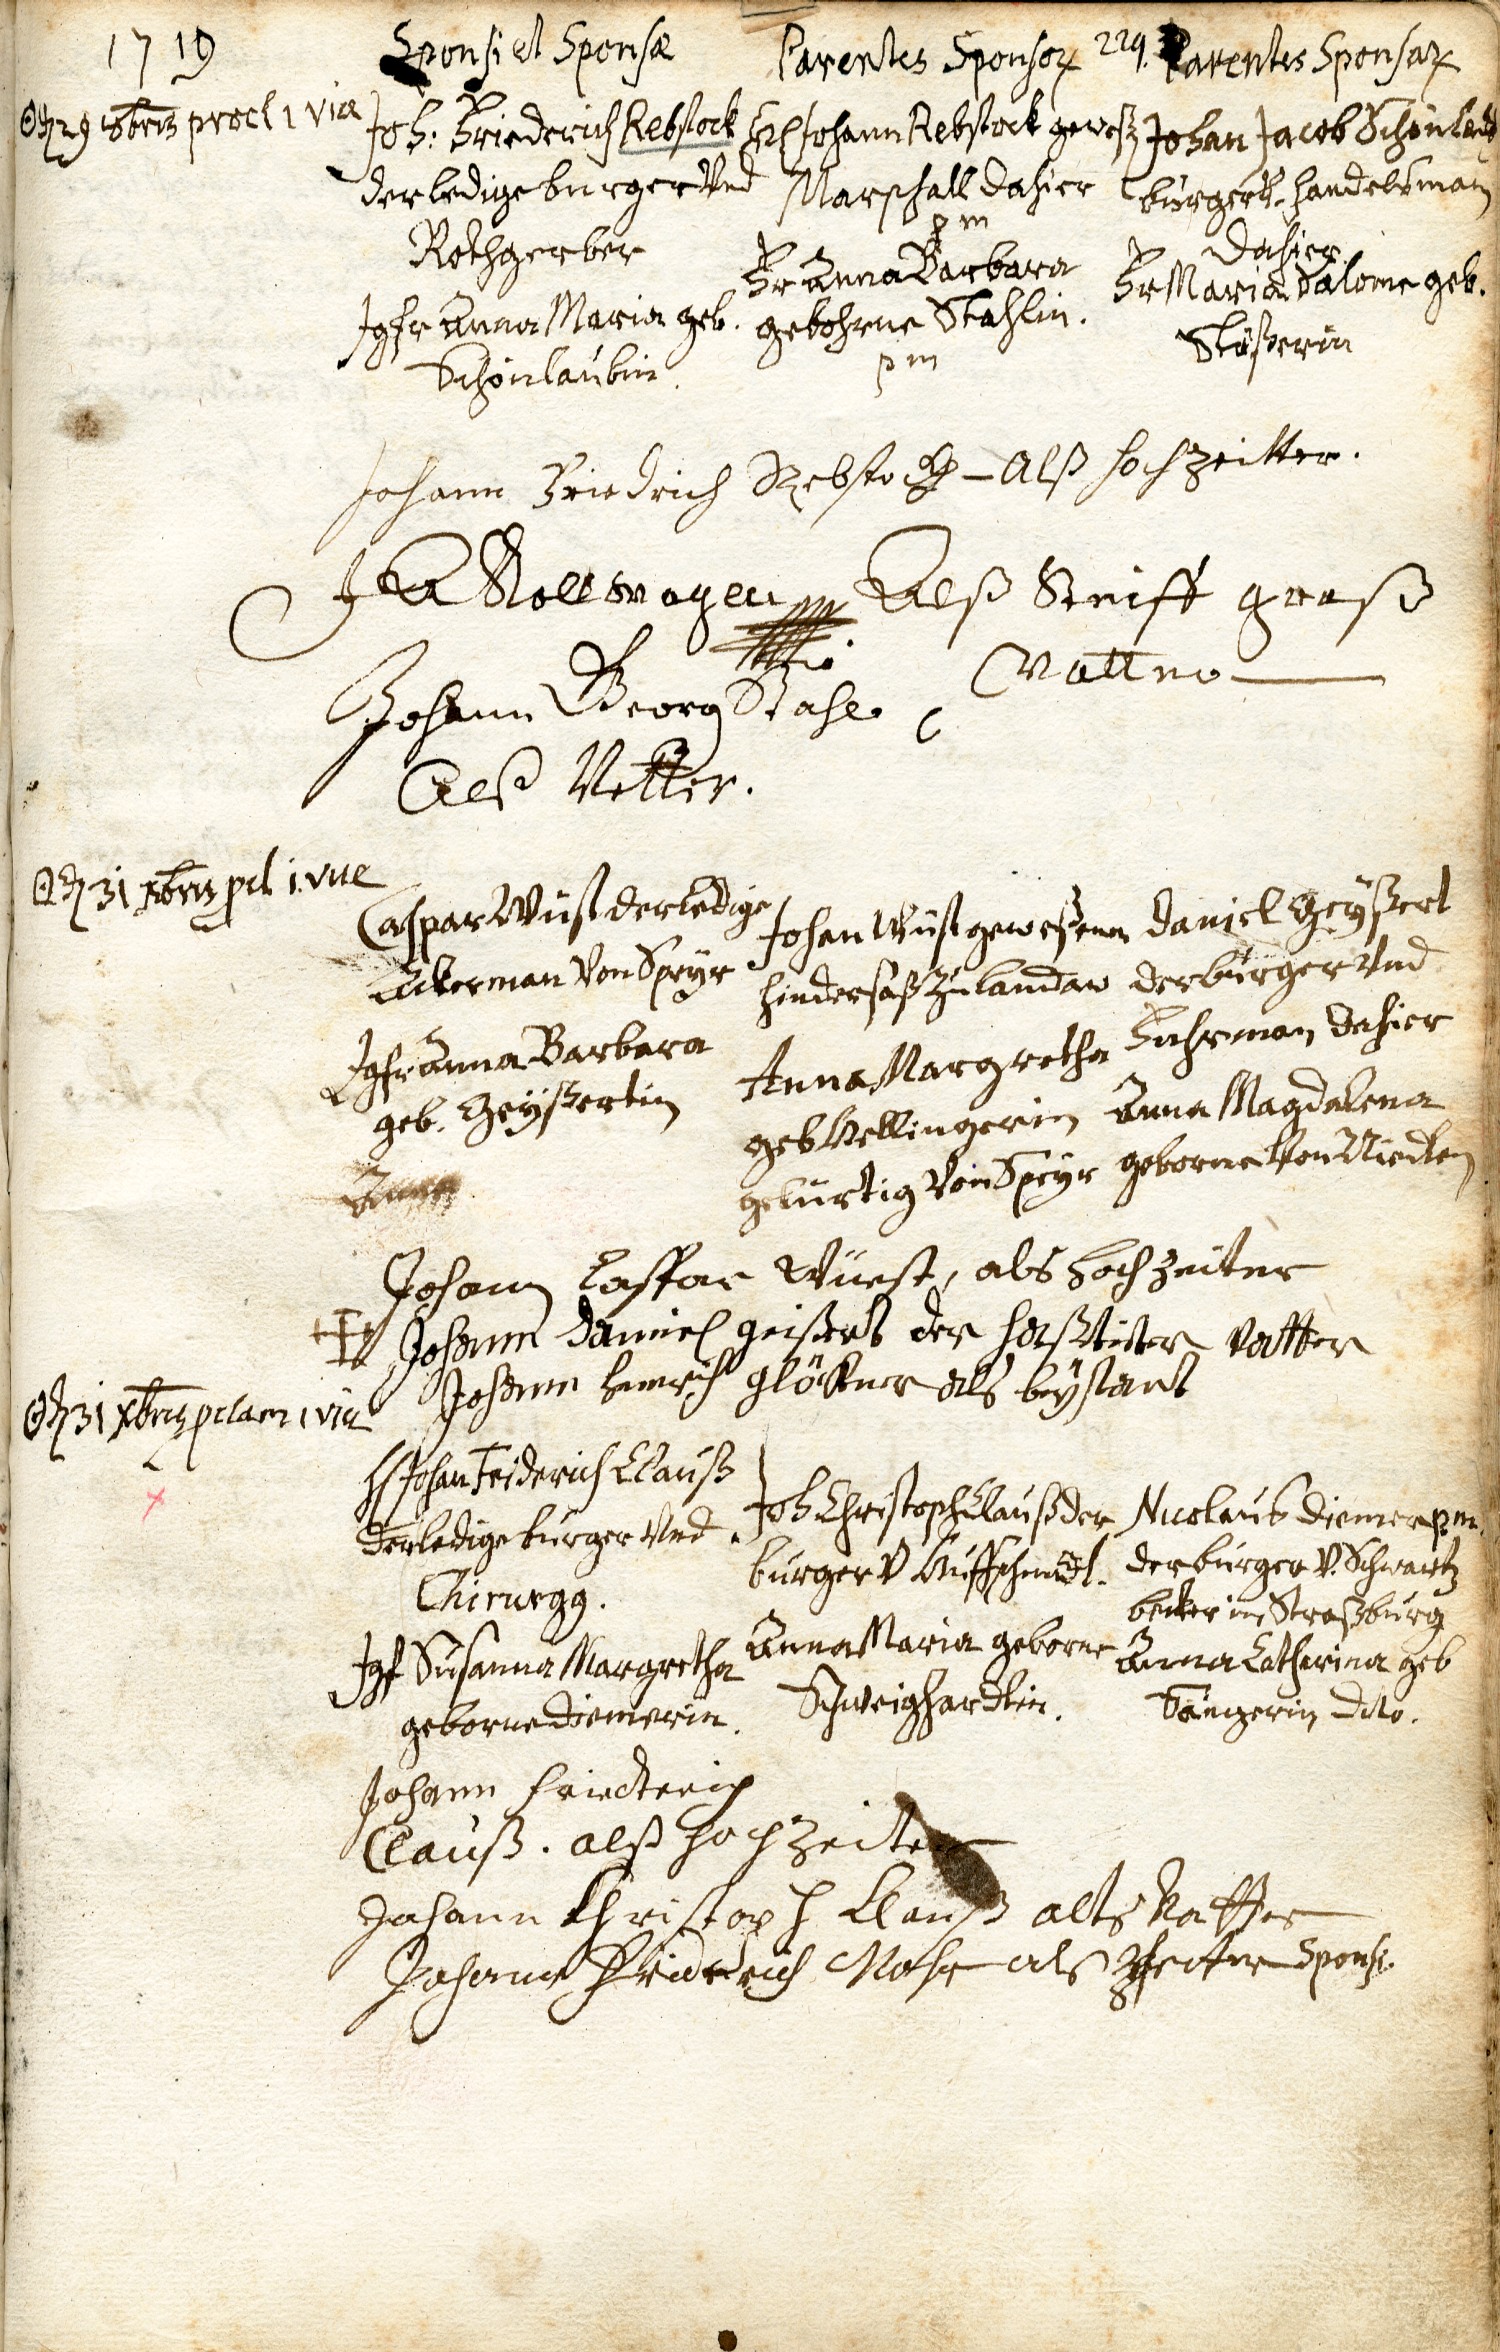 1719
Sponsi et Sponsæ
Parentes Sponsor
229.
Parentes Sponsar
29 procl 1 vice
Joh: Friederich Rebstock
der ledige burger Und
Rothgerber
Jgfr Anna Maria geb.
Schönlaubin.
Johann Rebstock gewesz
Marschall dahier
pm
Fr Anna Barbara
gebohrne Stahlin.
pm
Johan Jacob Schönlaub
burger handelsman
dahier
Fr Maria Salome geb.
Stößerin
Johann Friedrich Rebstock – Alß hochzeitter.
Rollwagen Alß Steiff groß
Vatter
Johann Georg Stahl
Alß Vetter.
31 xbris pcl 1. vice
Caspar Wüst der ledige
Ackerman Von Speyr
Jgfr Anna Barbara
geb. Geyßertin
Anna
Johan Wüst geweßener
hindersaß zu landaw
Anna Margretha
geb Kellingerin
gebürtig Von Speyr
Daniel Geyßert
der burger Und
Fuhrman dahier
Anna Magdalena
geborne Von Nieden
Johann Casspar Wüest, als hochzeiter
Johann Daniel geißert der hoßtiter vatter
Johann henrich glöckner als beystant
31 xbris 1 vice
Johan Friderich Clauß
der ledige burger Und
Chirurgg.
Jgf Susanna Margretha
geborne Diemerin.
Joh Christoph Clauß der
burger V Huffschmidt.
Anna Maria geborne
Schweighardtin.
Nicolaus Diemer pm.
der burger V. Schwartz
becker in Straßburg
Anna Catharina geb
Sängerin dito.
Johann Friedterich
Clauß. alß hochzeiter
Johann Christoph Clauß alts Vatter
Johann Friderich Mohr als Pfetter Sponsi.